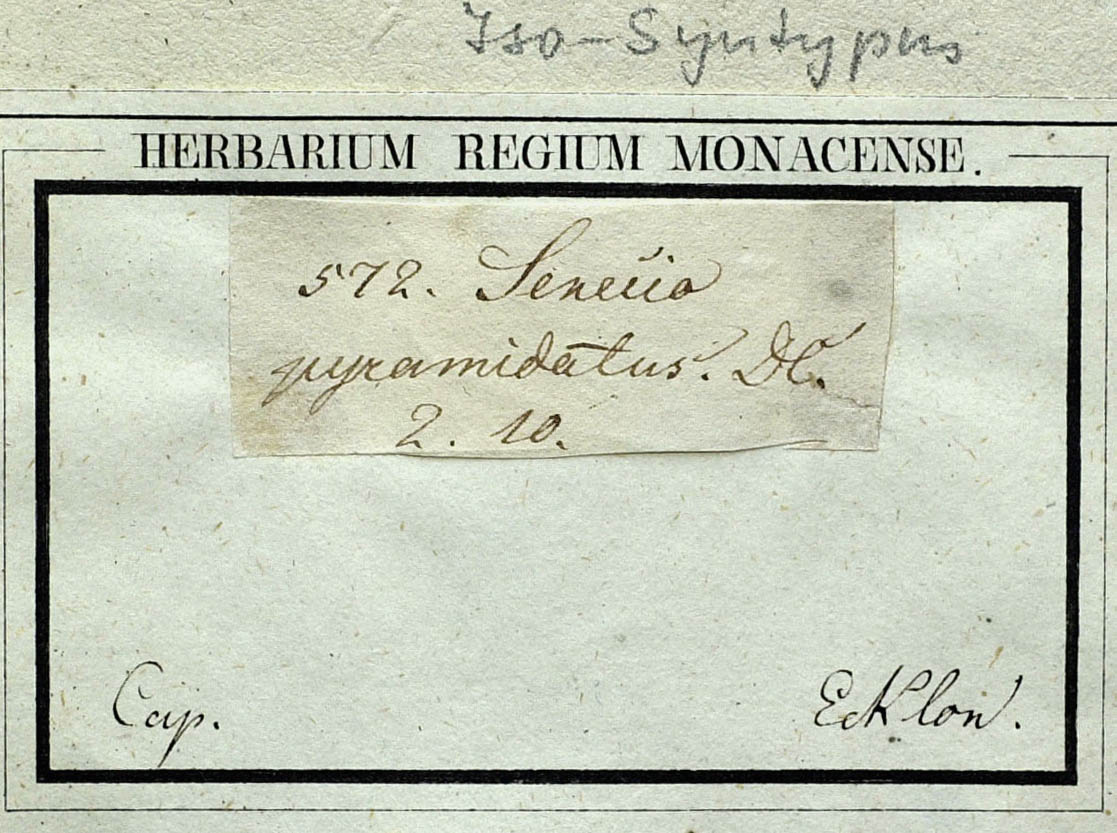 Iso-Syntypus
HERBARIUM REGIUM MONACENSE.
572. Senecio
pyramidatus. DC.
2. 10.
Cap. Ecklon.